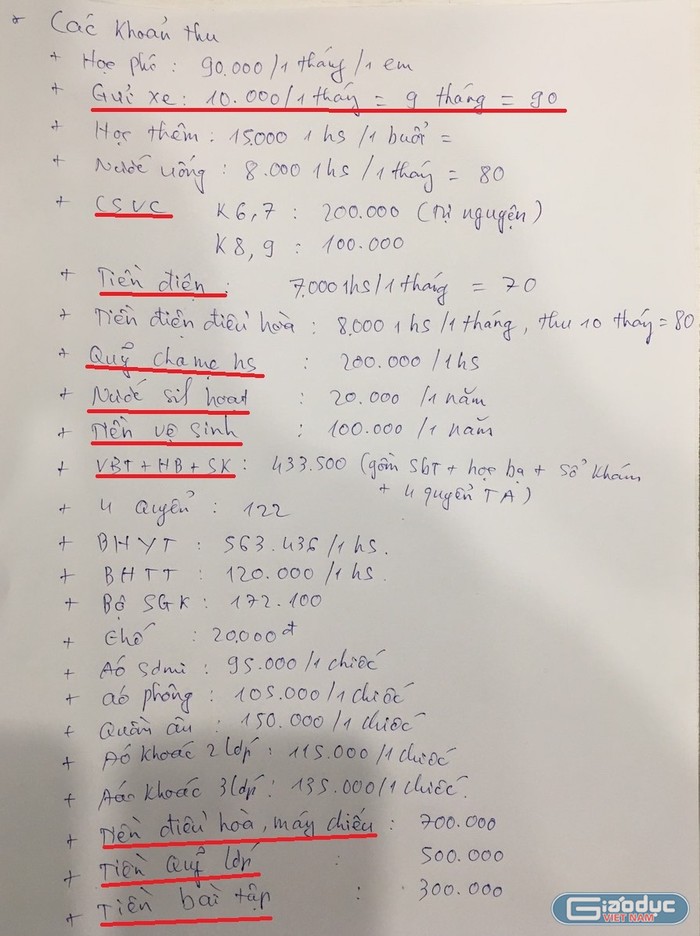 * Các khoản thu
+ Học phí : 90.000/1 tháng/1 em
+ Gửi xe : 10.000/1 tháng = 9 tháng = 90
+ Học thêm : 15.000 1 hs /1 buổi =
+ Nước uống : 8.000 1 hs /1 tháng = 80
+ CSVC K6,7 : 200.000 (Tự nguyện)
K8,9 : 100.000
+ Tiền điện : 7.000 1hs/1 tháng = 70
+ Tiền điện điều hoà : 8.000 1 hs /1 tháng, thu 10 tháng = 80
+ Quỹ cha mẹ hs : 200.000 /1 hs
+ Nước sih hoạt : 20.000 /1 năm
+ Tiền vệ sinh : 100.000 /1 năm
+ VBT + HB + SK : 433.500 (gồm SbT + học bạ + sổ khám
+ 4 quyển TA)
+ 4 Quyển : 122
+ BHYT : 563.436 /1 hs.
+ BHTT : 120.000 /1 hs.
+ Bộ SGK : 172.100
+ Ghế : 20.000đ
+ Áo Sơmi : 95.000 /1 chiếc
+ áo phông : 105.000 /1 chiếc
+ Quần âu : 150.000 /1 chiếc
+ Áo khoác 2 lớp : 115.000 /1 chiếc
+ Áo khoác 3 lớp : 135.000/1 chiếc.
+ Tiền điều hoà, máy chiếu : 700.000
+ Tiền Quỹ lớp : 500.000
+ Tiền bài tập : 300.000
Giáodục
VIỆT NAM